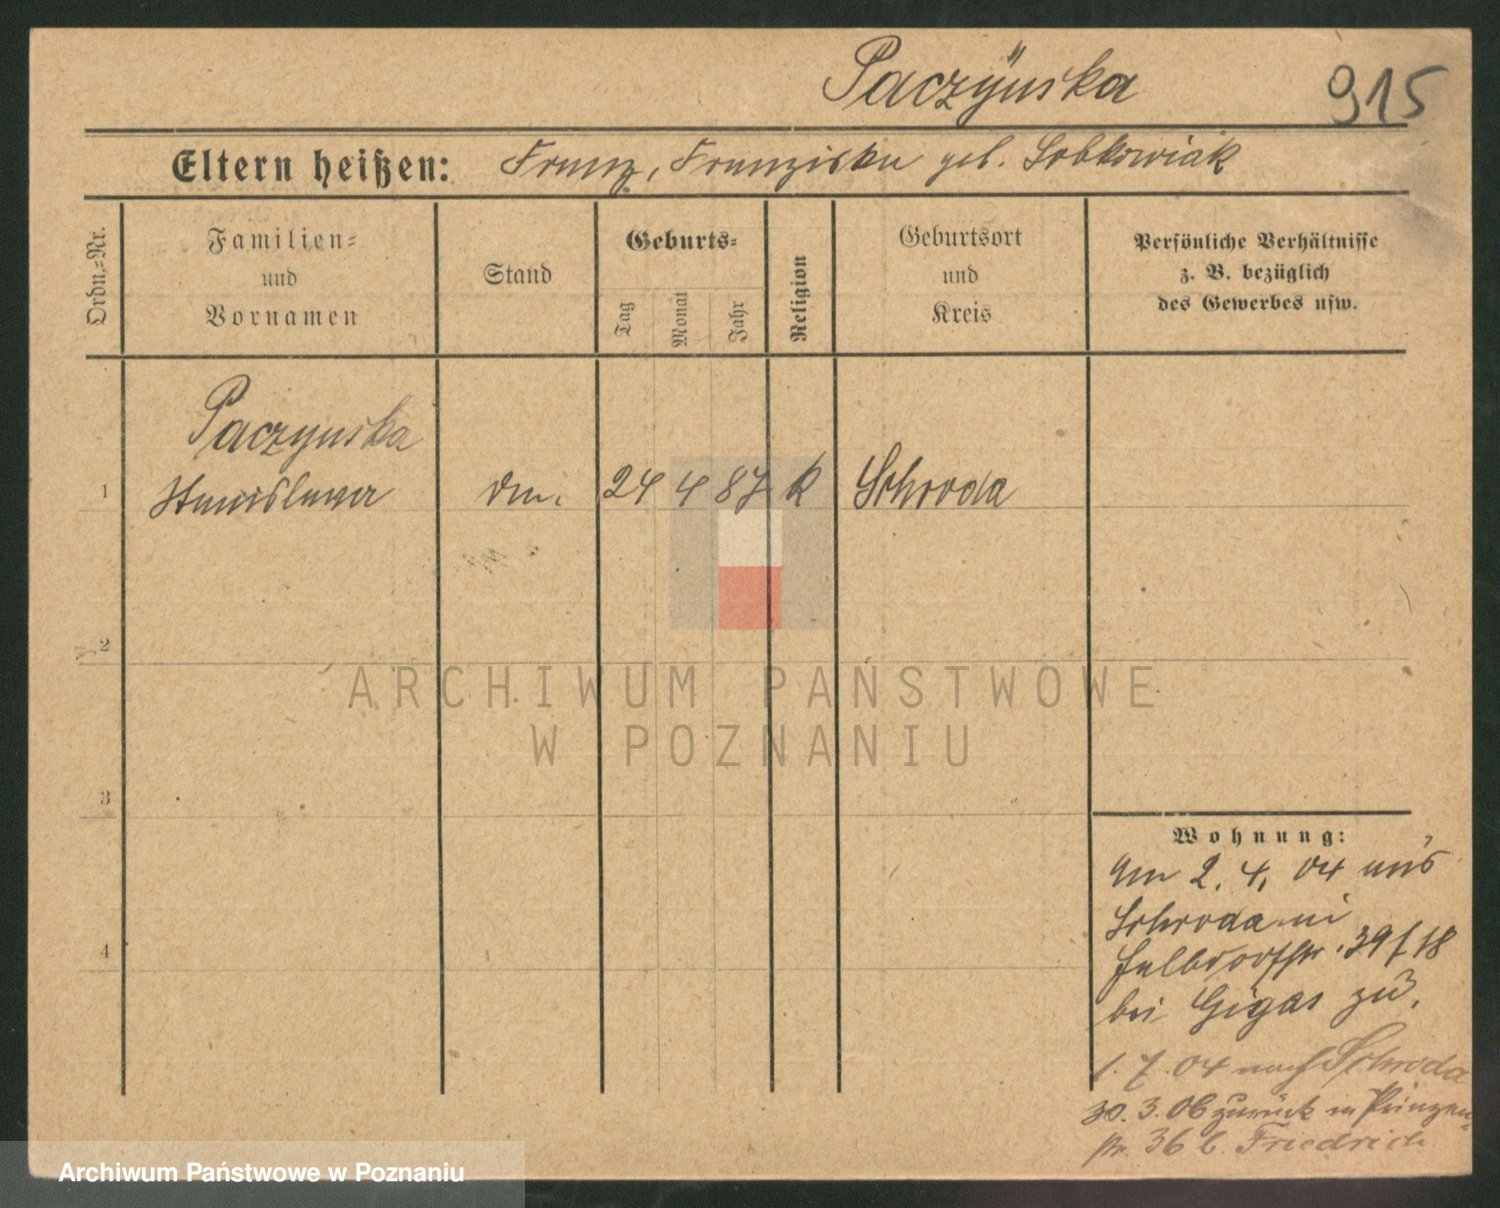 Paczÿnska 915
Eltern heißen: Franz, Franziska geb. Sobkowiak
Ordn.-Nr.
Familien-
und
Vornamen
Stand
Geburts-
Tag
Monat
Jahr
Religion
Geburtsort
und
Kreis
Persönliche Verhältnisse
z. B. bezüglich
des Gewerbes usw.
Paczynska
1 Stanislawa 24 4 87 K Schroda
2
3
4
Wohnung:
Am 2. 4. 04 aus
Schroda in
39/18
bei Gigas zu.
1. 7. 04 nach Schroda
30. 3. 06 zurück in Prinzen-
str. 36 b. Friedrich
ARCHIWUM PAŃSTWOWE
W POZNANIU
Archiwum Państwowe w Poznaniu